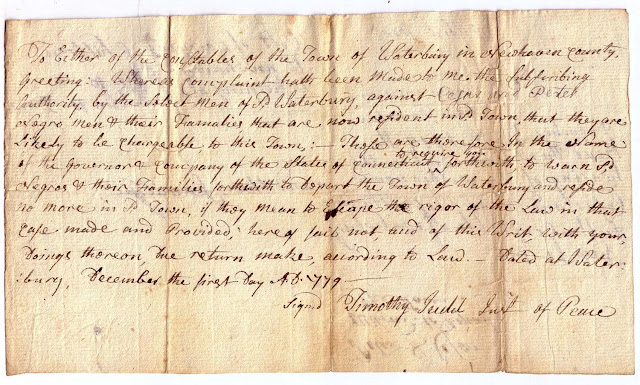 To Either of the Constables of the Town of Waterbury in Newhaven County,
Greeting: Whereas Complaint hath been made to me, the Subscribing
Authority, by the Select Men of sd Waterbury, against Cezar and Peter
Negro Men & their Families that are now resident in sd Town, that they are
Likely to be Chargeable to this Town; :— These are therefore In the Name
of the Governor & Company of the State of Connecticut to require you forthwith to warn sd
Negros & their Families forthwith to Depart the Town of Waterbury and reside
no more in sd Town, if they mean to Escape the rigor of the Law in that
Case made and Provided, here of fail not and of this Writ, with your
Doings thereon, Due return make, according to Law. — Dated at Water-
:bury, December the first Day A.D. 1779 —
Signd Timothy Judd Just of Peace